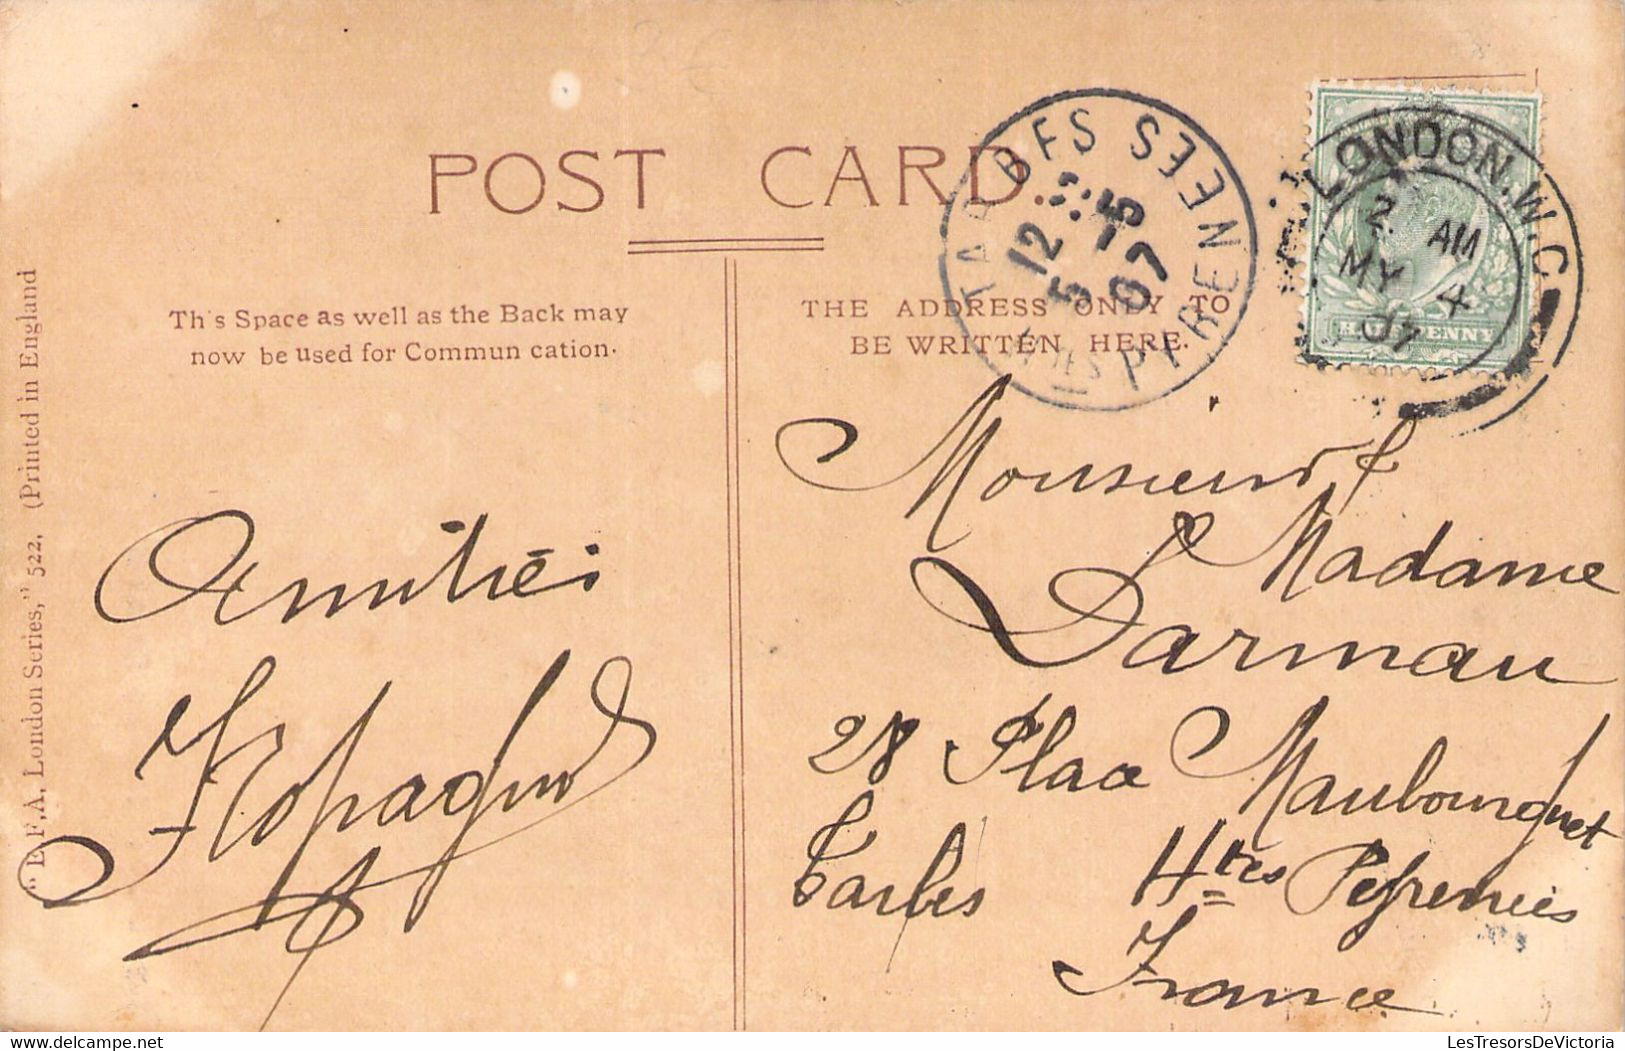 POST CARD.
This Space as well as the Back may
now be used for Communication.
THE ADDRESS ONLY TO
BE WRITTEN HERE.
"E.F.A. London Series," 522. (Printed in England
TARBES
Htes PYRENEES
12 5
5 07
LONDON.W.C
2 AM
MY 4
07
HALFPENNY
Amitiés
Monsieur &
Madame
Darmau
28 Place Maubourguet
Tarbes Htes Pyrennées
France
LesTresorsDeVictoria
delcampe.net